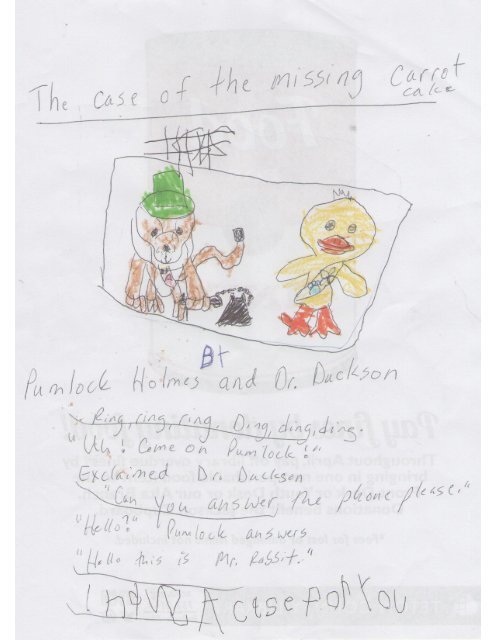 The case of the missing carrot
cake
Bt
Pumlock Holmes and Dr. Duckson
Ring, ring, ring. Ding, ding, ding.
"Uh! Come on Pumlock!"
Exclaimed Dr. Duckson
"Can you answer, the phone please."
"Hello?" Pumlock answers
"Hello this is Mr. Rabbit."
I have A case for You